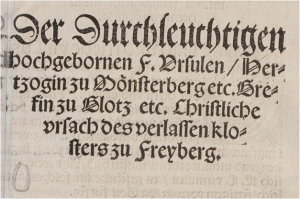 Der Durchleuchtigen
hochgebornen F. Vrsulen / Her-
tzogin zu Mönsterberg etc. Gre-
fin zu Glotz etc. Christliche
vrsach des verlassen klo-
sters zu Freyberg.